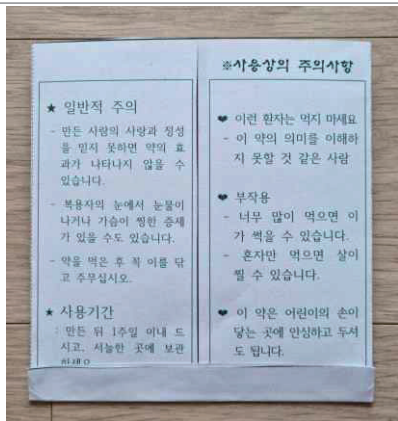 ★ 일반적 주의
- 만든 사람의 사랑과 정성
을 믿지 못하면 약의 효
과가 나타나지 않을 수
있습니다.
- 복용자의 눈에서 눈물이
나거나 가슴이 찡한 증세
가 있을 수도 있습니다.
- 약을 먹은 후 꼭 이를 닦
고 주무십시오.
★ 사용기간
: 만든 뒤 1주일 이내 드
시고, 서늘한 곳에 보관
하세요
※사용상의 주의사항
❤ 이런 환자는 먹지 마세요
- 이 약의 의미를 이해하
지 못할 것 같은 사람
❤ 부작용
- 너무 많이 먹으면 이
가 썩을 수 있습니다.
- 혼자만 먹으면 살이
찔 수 있습니다.
❤ 이 약은 어린이의 손이
닿는 곳에 안심하고 두셔
도 됩니다.